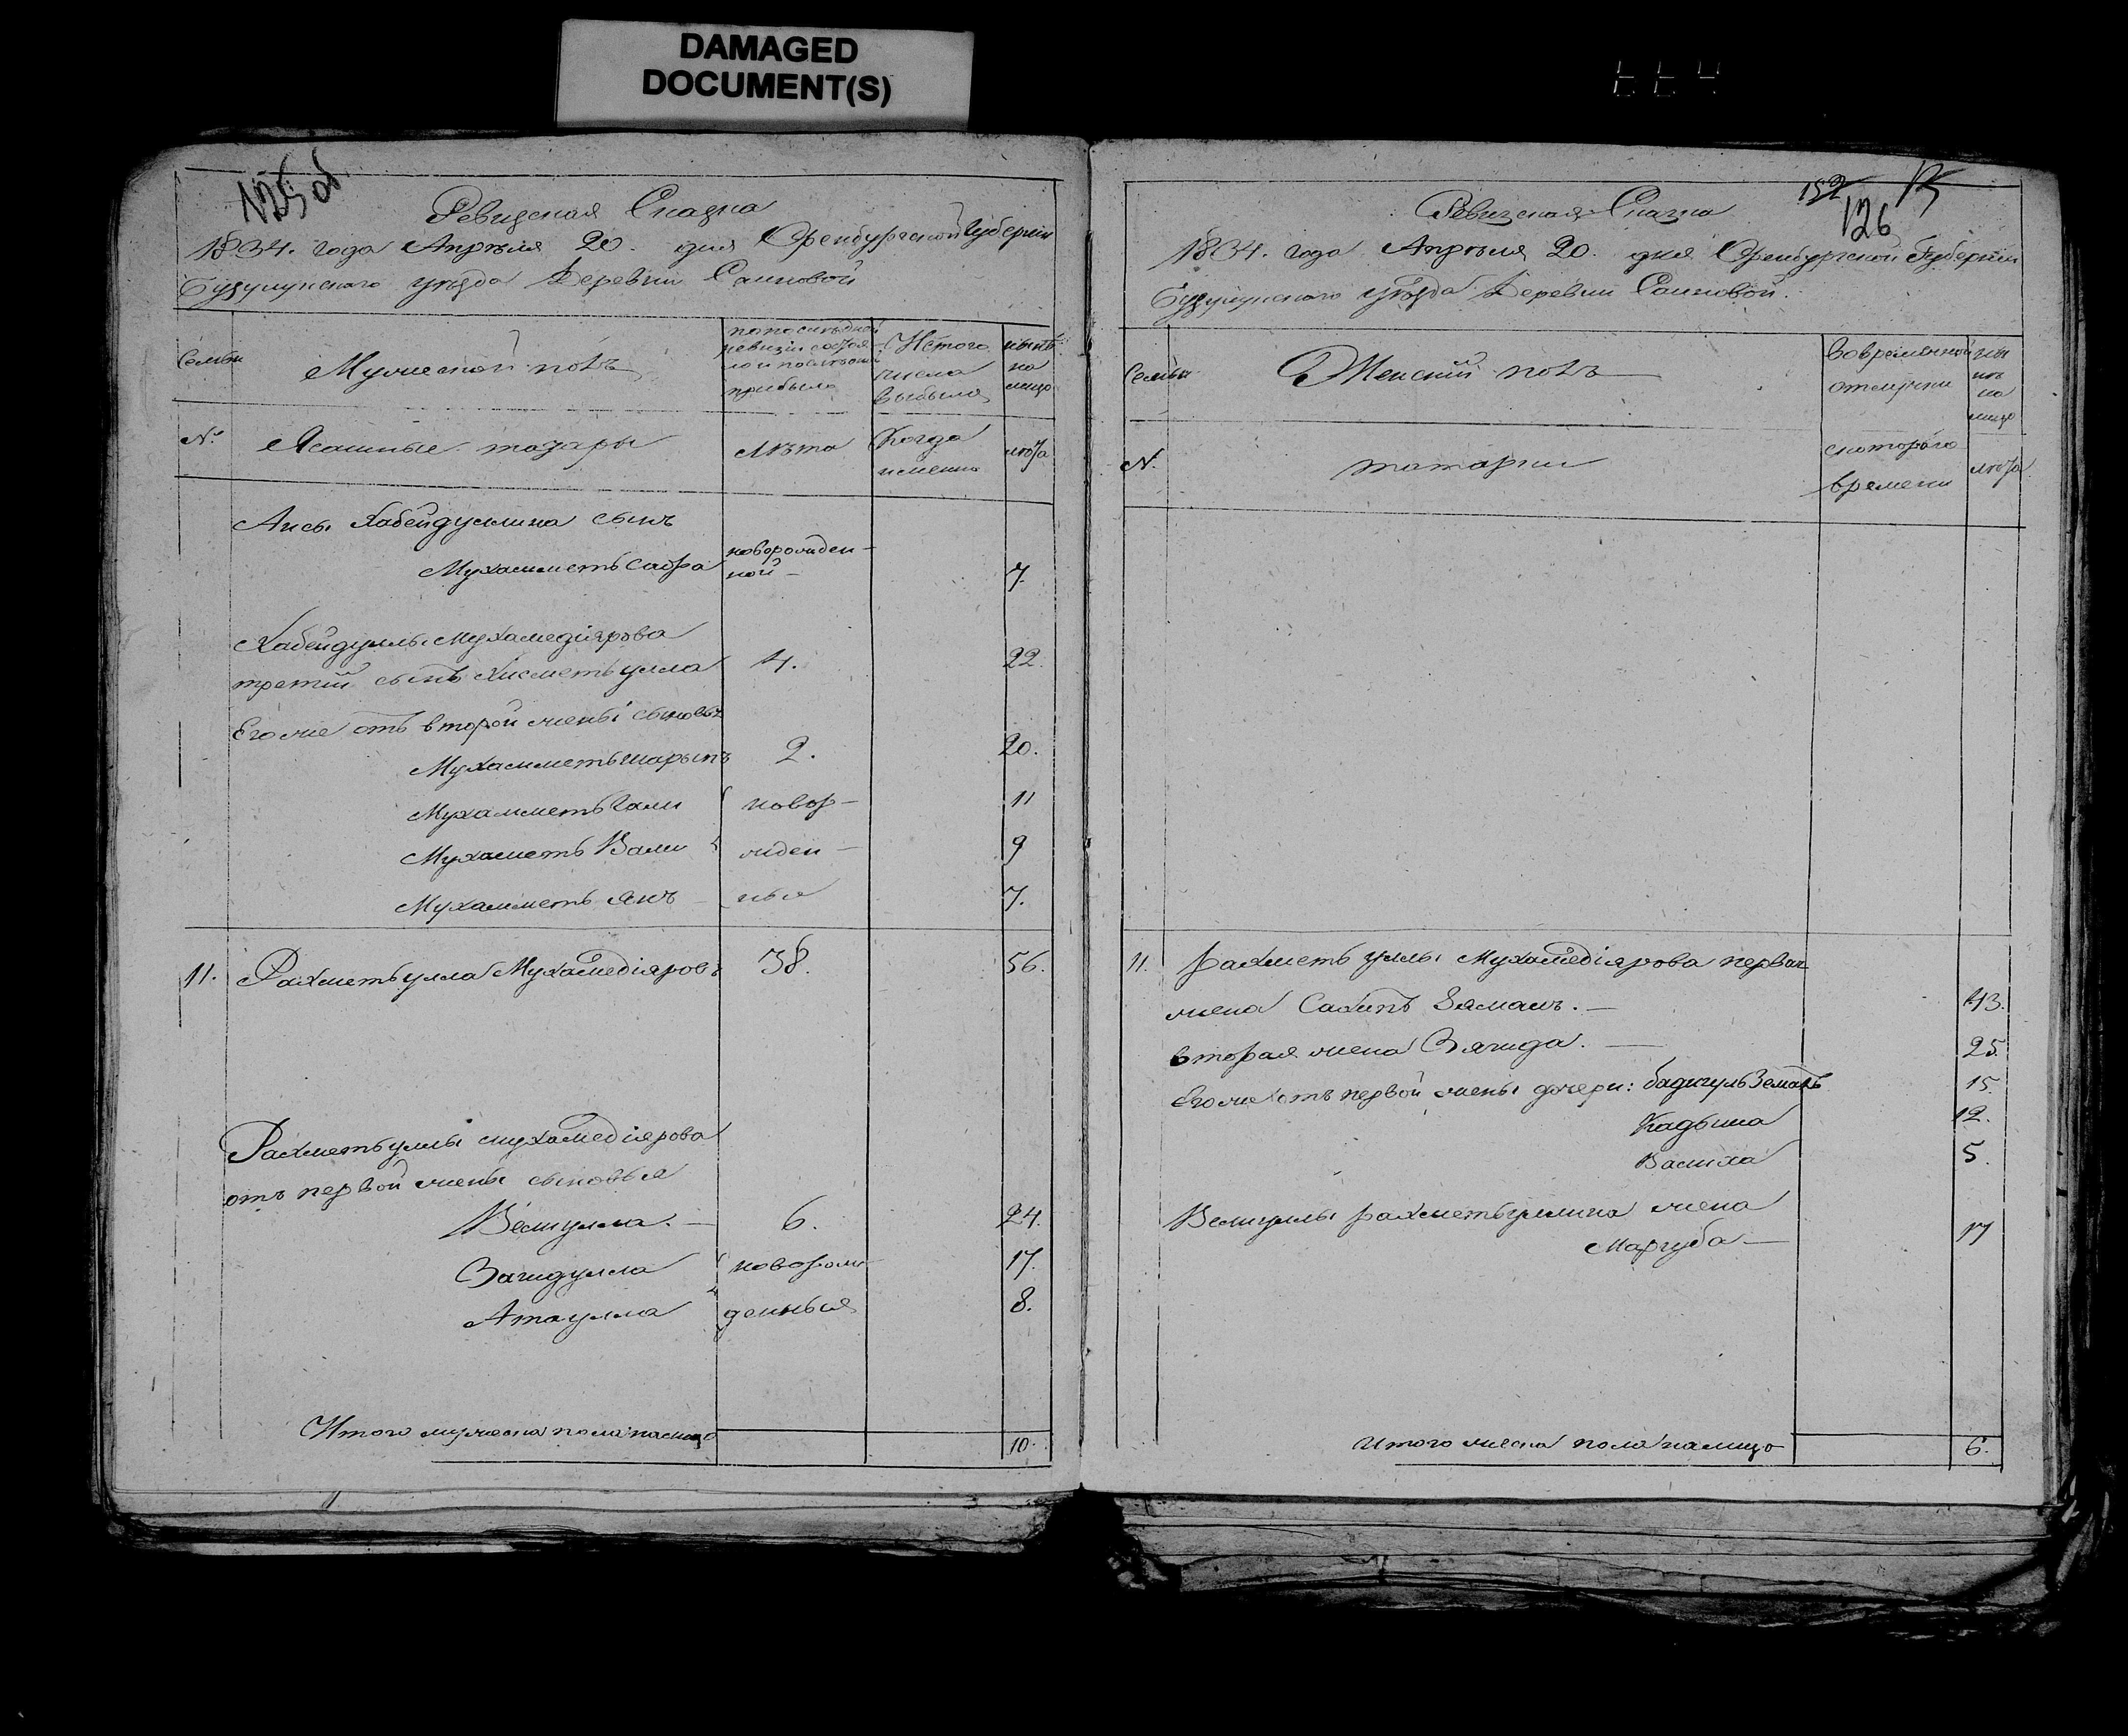 DAMAGED
DOCUMENT(S)
125 об
Ревизская Сказка
1834. года Апреля 20. дня Оренбургской Губернии
Бузулукскаго уѣзда Деревни
Семьи
Мужеской полъ
по последней ревизіи состояло и после того прибыло
Изтого числа выбыло
нынѣ на лицо
№
Ясашные татары
Лѣта
Когда именно
лѣта
Аисы Хабейдуллина сынъ
Мухамметь Сафа
новорожден-
ной-
7.
Хабейдуллы Мухамедіярова
третій сынъ Хисметьулла 4. 22.
Его же отъ второй жены сыновья
Мухамметьшарыпъ 2. 20.
Мухамметь Гали новор- 11
Мухаметь Вали жден- 9
Мухамметь Янъ ныя 7.
11. Рахметьулла Мухамедіяровъ 38. 56.
Рахметьуллы мухамедіярова
отъ первой жены сыновья
Велиулла. 6. 24.
Загидулла новорож- 17.
Атаулла денныя 8.
Итого мужеска пола налицо 10.
152
126
Ревизская Сказка
1834. года Апреля 20. дня Оренбургской Губерніи
Бузулукскаго уѣзда Деревни
Семьи
Женскій полъ
Вовременной отлучки
ны нѣ на лицо
№.
татарки
скотораго времени
лѣта
11. Рахметьуллы Мухамедіярова первая
жена Сахипъ Зяманъ. 43.
вторая жена Зягида. 25.
Его же отъ первой жены дочери: 15.
Кадыша 12.
Валиха 5.
Велиуллы рахметьуллина жена
Маргуба 17
Итого женска пола налицо 6.